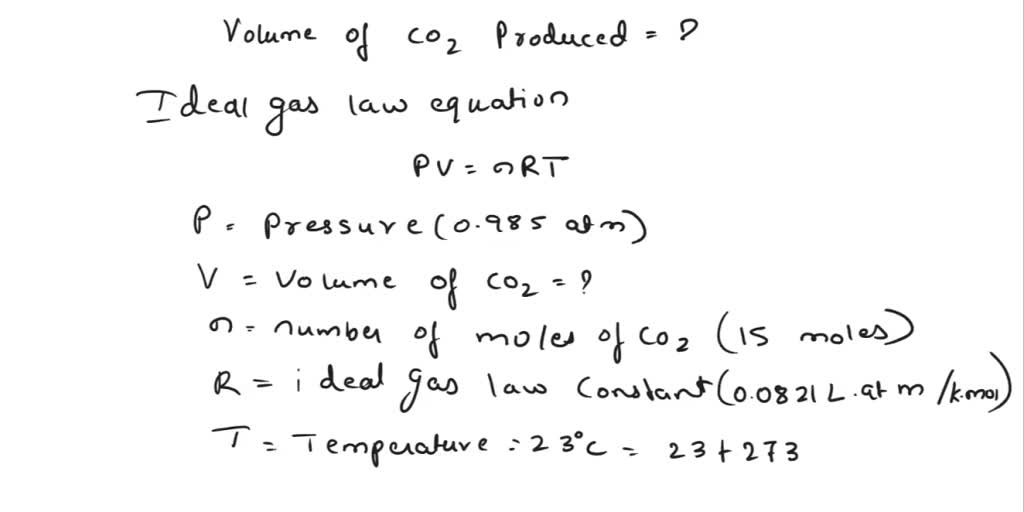 Volume of CO2 Produced = ?
Ideal gas law equation
PV = nRT
P = Pressure (0.985 atm)
V = Volume of CO2 = ?
n = number of moles of CO2 (15 moles)
R = ideal gas law constant (0.0821 L.atm/k.mol)
T = Temperature = 23°C = 23+273